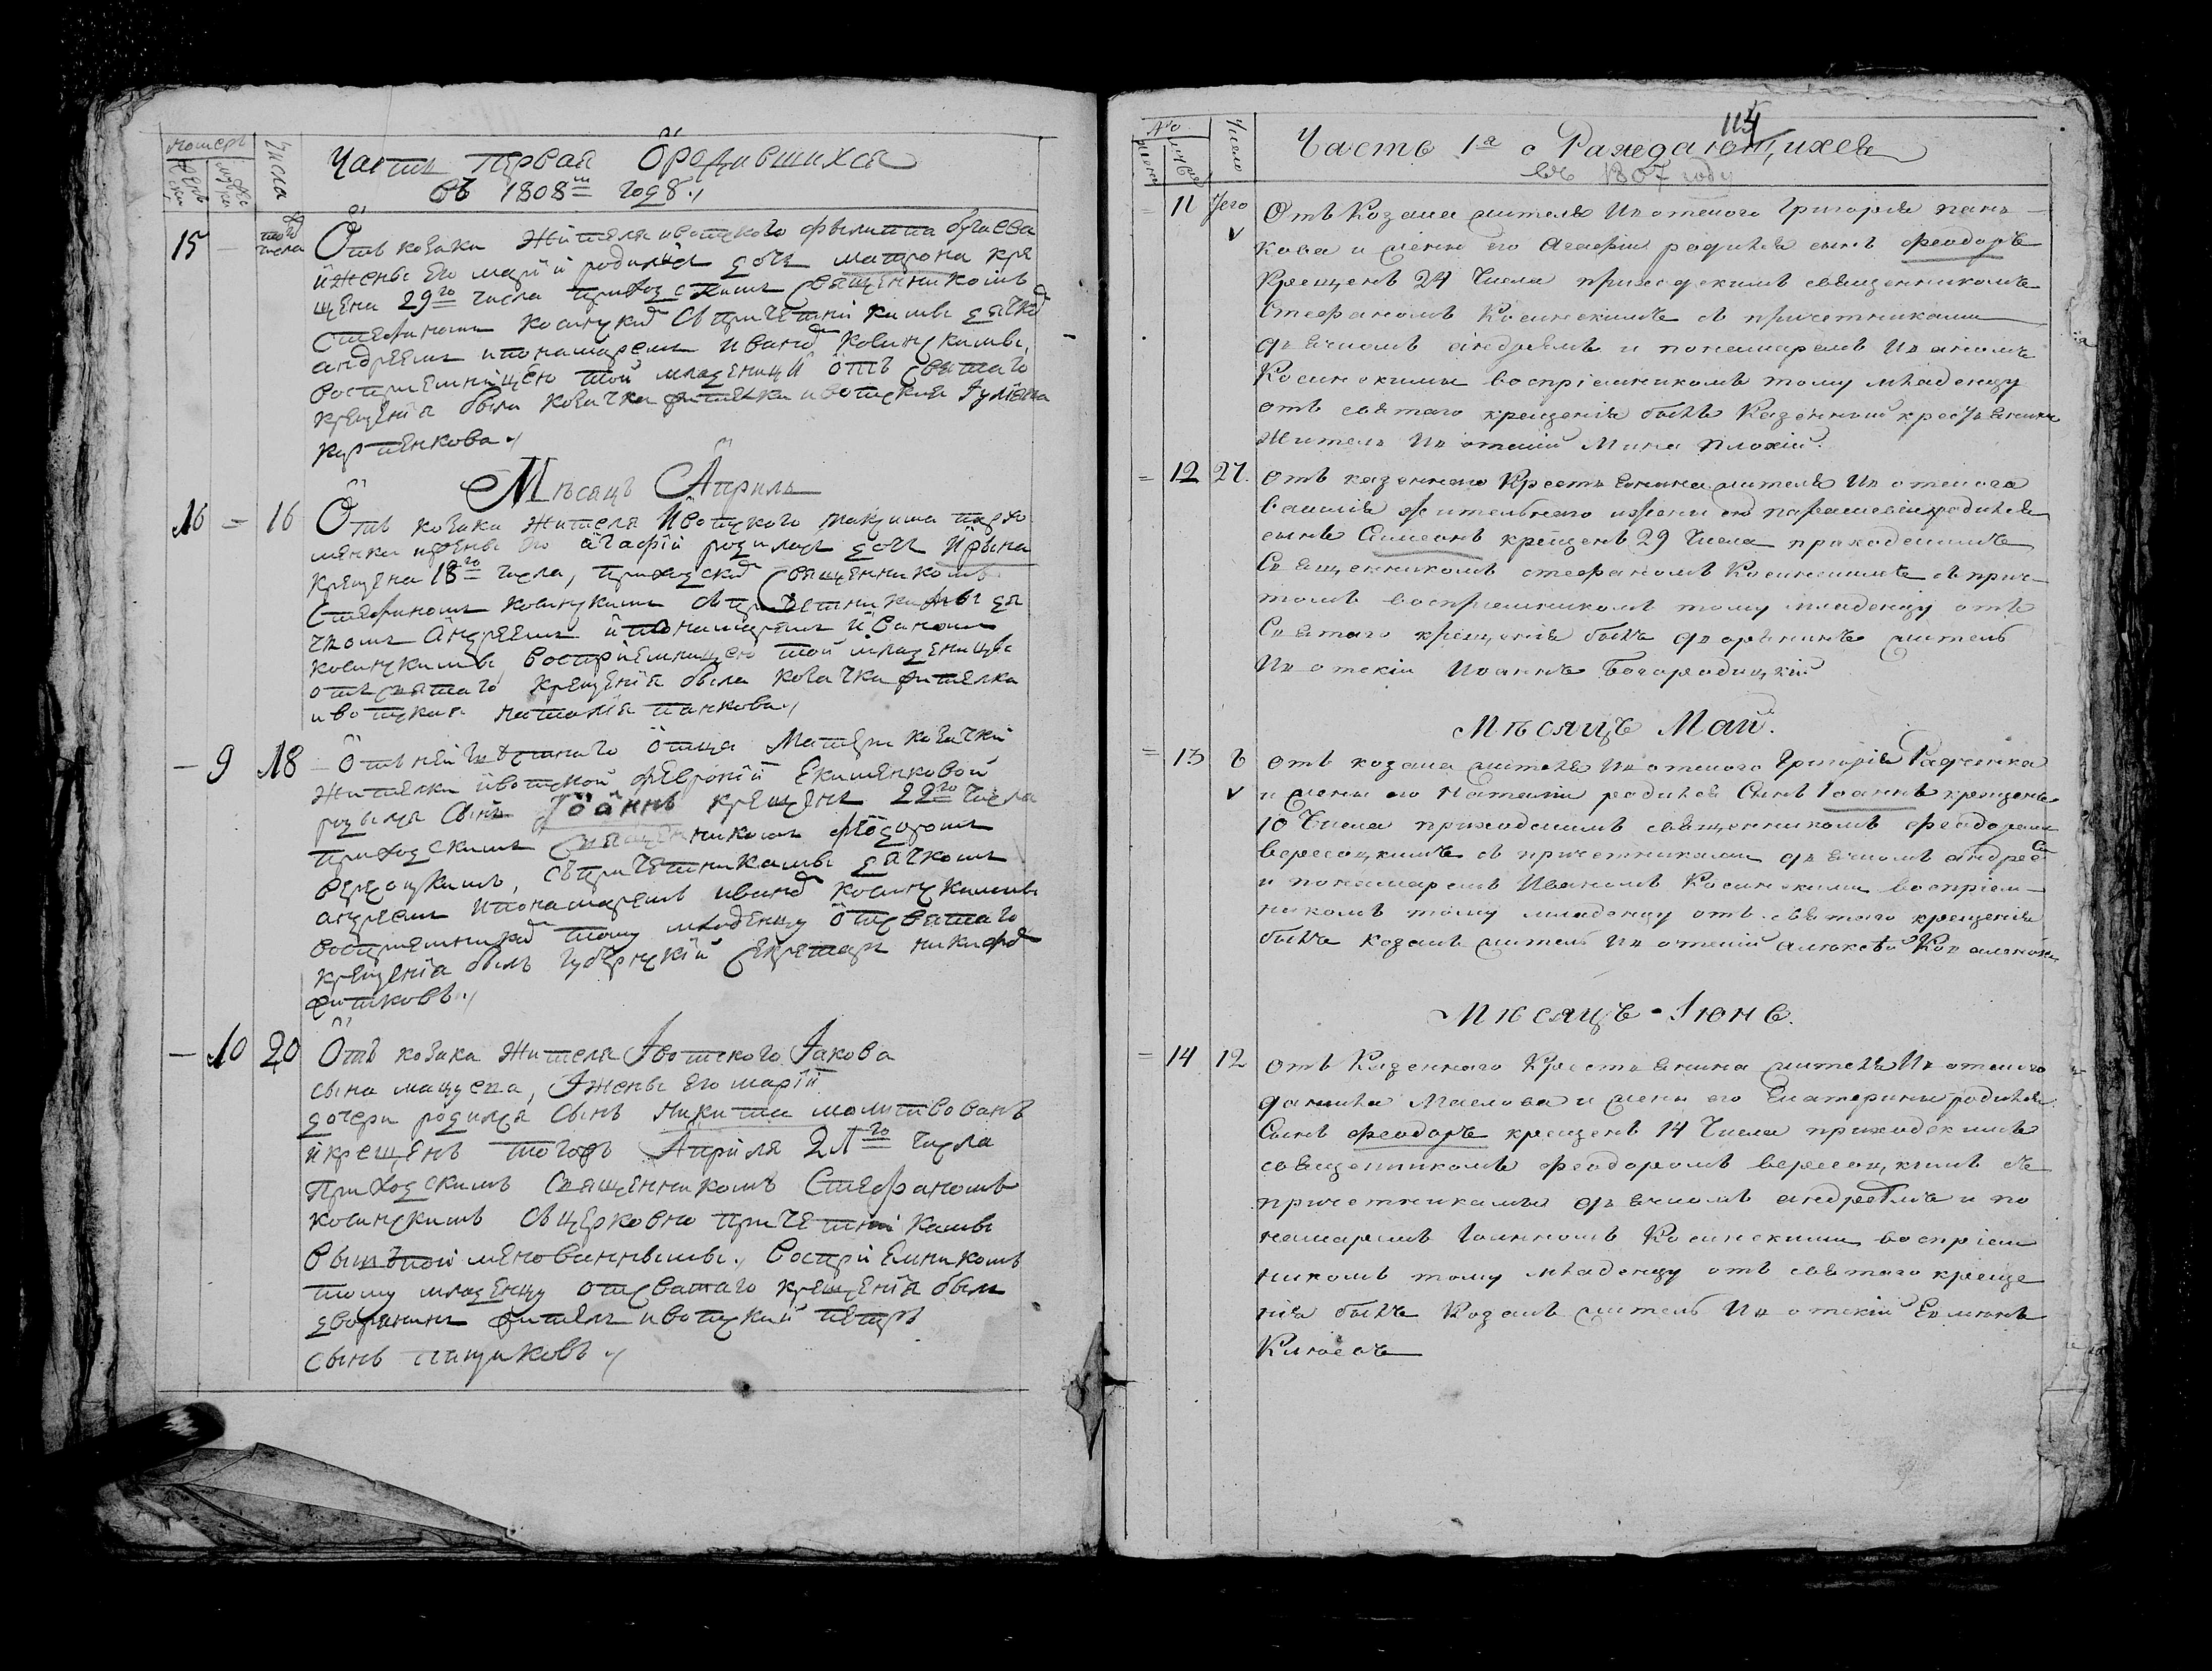 номеръ
Числа
Часть первая ѽ родившихся
въ 1808м году.,
15 – того числа Ѿ козака жителя ивотского филиппа бугаева
и жены его маріи родилася дочь матрона кре
щена 29го числа приходскимъ священникомъ
Стефаномъ косинским съ причетниками дячком
андреемъ и пономаремъ иваном косинскимъ,
воспріемницею той младеницы ѿ святаго
крещенія была козачка жителка ивотская Іуліана
Мѣсяцъ Апрель
16 = 16 Ѿ козака жителя Ивотского
и жены его агафіи родилась дочь ирина
крещена 18го числа, приходским Священникомъ
Стефаномъ косинскимъ съ причетниками дя
чкомъ Андреемъ и пономаремъ Иваномъ
косинскимъ воспріемницею той младеницы
отъ святаго крещенія была козачка жителка
ивотская наталія панкова.,
– 9 18 отца Матери козачки
жителки ивотской февроніи Екименковой
родился сынъ Іоаннъ крещенъ 22го числа
приходскимъ священникомъ феодоромъ
вересоцкимъ, съ причетниками дячкомъ
андреемъ и пономаремъ иваном косинскимъ
воспріемником тому младенцу ѿ святаго
крещенія былъ губернскій секретарь никифор
– 10 20 Отъ козака жителя Івотского Іакова
сына мацуева, Іжены его маріи
дочери родился сынъ никита молитвованъ
и крещенъ тогожъ Апрѣля 21го числа
Приходскимъ Священникомъ Стефаномъ
косинскимъ съ церковно причетниками
вышъ поименованными., воспріемникомъ
тому младенцу от святаго крещенія былъ
дворянинъ житель ивотский петръ
сынъ пищиковъ.,
114
Число
Часть 1я о Раждающихся
въ 1807 году
= 11 Того Отъ Козака жителя Ивотского Григорія пань–
кова и жены его Агафіи родился сынъ феодоръ
Крещенъ 24 Числа приходскимъ священникомъ
Стефаномъ Косинскимъ съ причетниками
дьячкомъ андреемъ и пономаремъ Иваномъ
Косинскими воспріемникомъ тому младенцу
отъ святаго крещенія былъ Казенный крестьянинъ
житель Ивотскій Мина Плохій.
= 12 27. Отъ казеннаго Крестьянина жителя Ивотского
родился
сынъ Симеонъ крещенъ 29 Числа приходскимъ
Священникомъ стефаномъ Косинскимъ съ прич–
томъ воспріемникомъ тому младенцу отъ
Святаго крещенія былъ дворянинъ житель
Ивотскій Иоаннъ Богородицкій
Мѣсяцъ Май.
= 13 6 Отъ козака жителя Ивотского Григорія Радченка
и жены его Наталіи родился Сынъ Іоаннъ крещенъ
10 Числа приходскимъ священникомъ феодоромъ
вересоцкимъ съ причетниками дьячкомъ андреем
и пономаремъ Иваномъ Косинскими воспріем–
никомъ тому младенцу отъ святаго крещенія
былъ Козакъ житель Ивотскій алексѣй
Мѣсяцъ Іюнь.
= 14 12 Отъ Казеннаго Крестьянина жителя Ивотского
данила Маслова и жены его Екатерины родился
Сынъ феодоръ крещенъ 14 Числа приходскимъ
священникомъ феодоромъ вересоцкимъ съ
причетниками дьячкомъ андреемъ и по
номаремъ Іоанномъ Косинскими воспріем
никомъ тому младенцу отъ святаго креще
нія былъ Козакъ житель Ивотскій